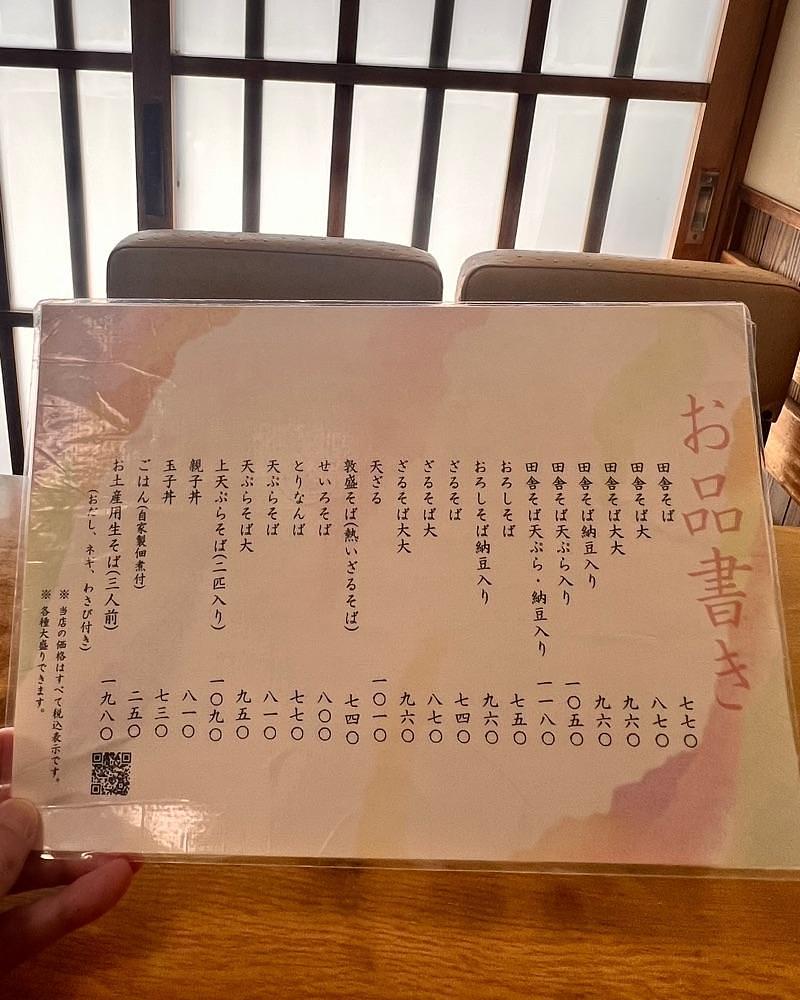 お品書き
田舎そば 七七〇
田舎そば大 八七〇
田舎そば大大 九六〇
田舎そば納豆入り 九六〇
田舎そば天ぷら入り 一〇五〇
田舎そば天ぷら・納豆入り 一一八〇
おろしそば 七五〇
おろしそば納豆入り 九六〇
ざるそば 七四〇
ざるそば大 八七〇
ざるそば大大 九六〇
天ざる 一〇一〇
敦盛そば(熱いざるそば) 七四〇
せいろそば 八〇〇
とりなんば 七七〇
天ぷらそば 八一〇
天ぷらそば大 九五〇
上天ぷらそば(二匹入り) 一〇九〇
親子丼 八一〇
玉子丼 七三〇
ごはん(自家製佃煮付) 二五〇
お土産用生そば(三人前) 一九八〇
(おだし、ネギ、わさび付き)
※ 当店の価格はすべて税込表示です。
※ 各種大盛りできます。